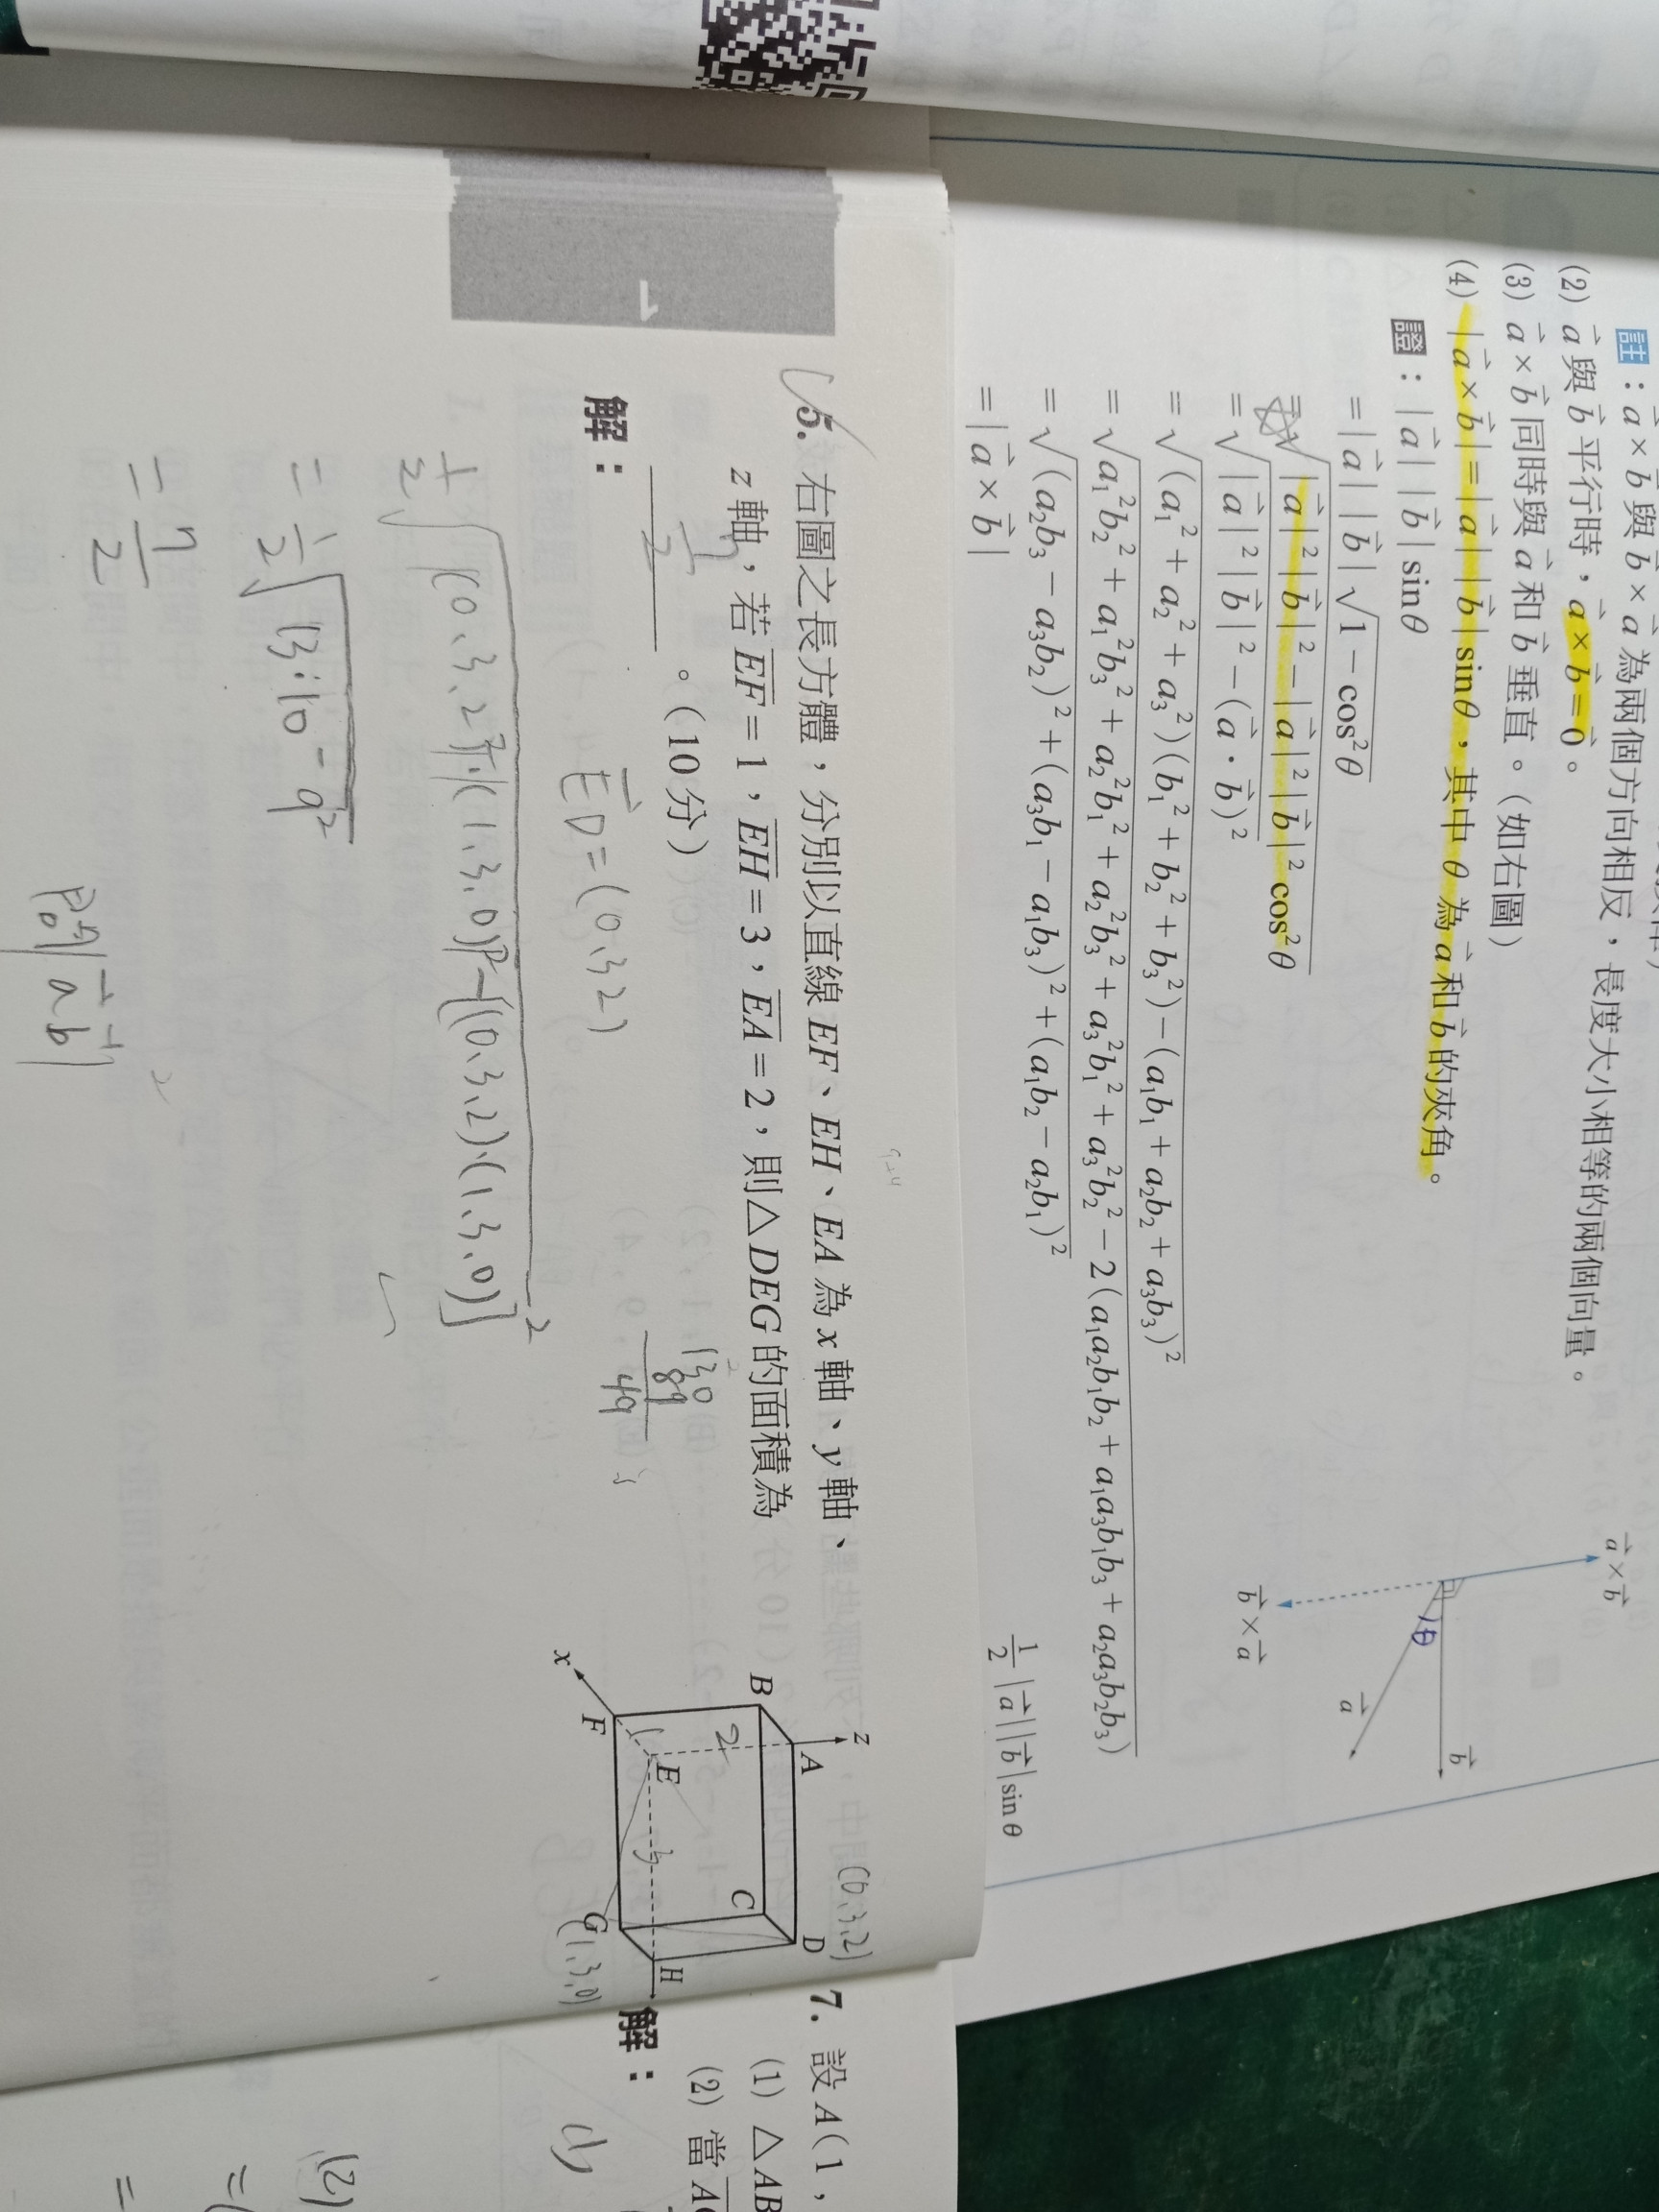 註：a×b與b×a為兩個方向相反，長度大小相等的兩個向量。
(2) a與b平行時，a×b=0。
(3) a×b同時與a和b垂直。(如右圖)
(4) |a×b|=|a||b|sinθ，其中θ為a和b的夾角。
證：|a||b|sinθ
=|a||b|√(1-cos²θ)
=√(|a|²|b|²-|a|²|b|²cos²θ)
=√(|a|²|b|²-(a·b)²)
=√((a₁²+a₂²+a₃²)(b₁²+b₂²+b₃²)-(a₁b₁+a₂b₂+a₃b₃)²)
=√(a₁²b₂²+a₁²b₃²+a₂²b₁²+a₂²b₃²+a₃²b₁²+a₃²b₂²-2(a₁a₂b₁b₂+a₁a₃b₁b₃+a₂a₃b₂b₃))
=√((a₂b₃-a₃b₂)²+(a₃b₁-a₁b₃)²+(a₁b₂-a₂b₁)²)
=|a×b|
a×b
b
θ
a
b×a
1/2|a||b|sinθ
1
5. 右圖之長方體，分別以直線EF、EH、EA為x軸、y軸、
z軸，若EF=1，EH=3，EA=2，則△DEG的面積為
7/2 。(10分)
解：
ED=(0,3,2)
130
81
49
1/2√(|(0,3,2)|²·|(1,3,0)|²-[(0,3,2)·(1,3,0)]²
=1/2√(13·10-9²)
=7/2
|a b|
z
A
B
(0,3,2)
D
C
2
E
1
3
x
F
G
(1,3,0)
H
7. 設A(1,
(1) △AB
(2) 當
解：
(1)
(2)
=
=